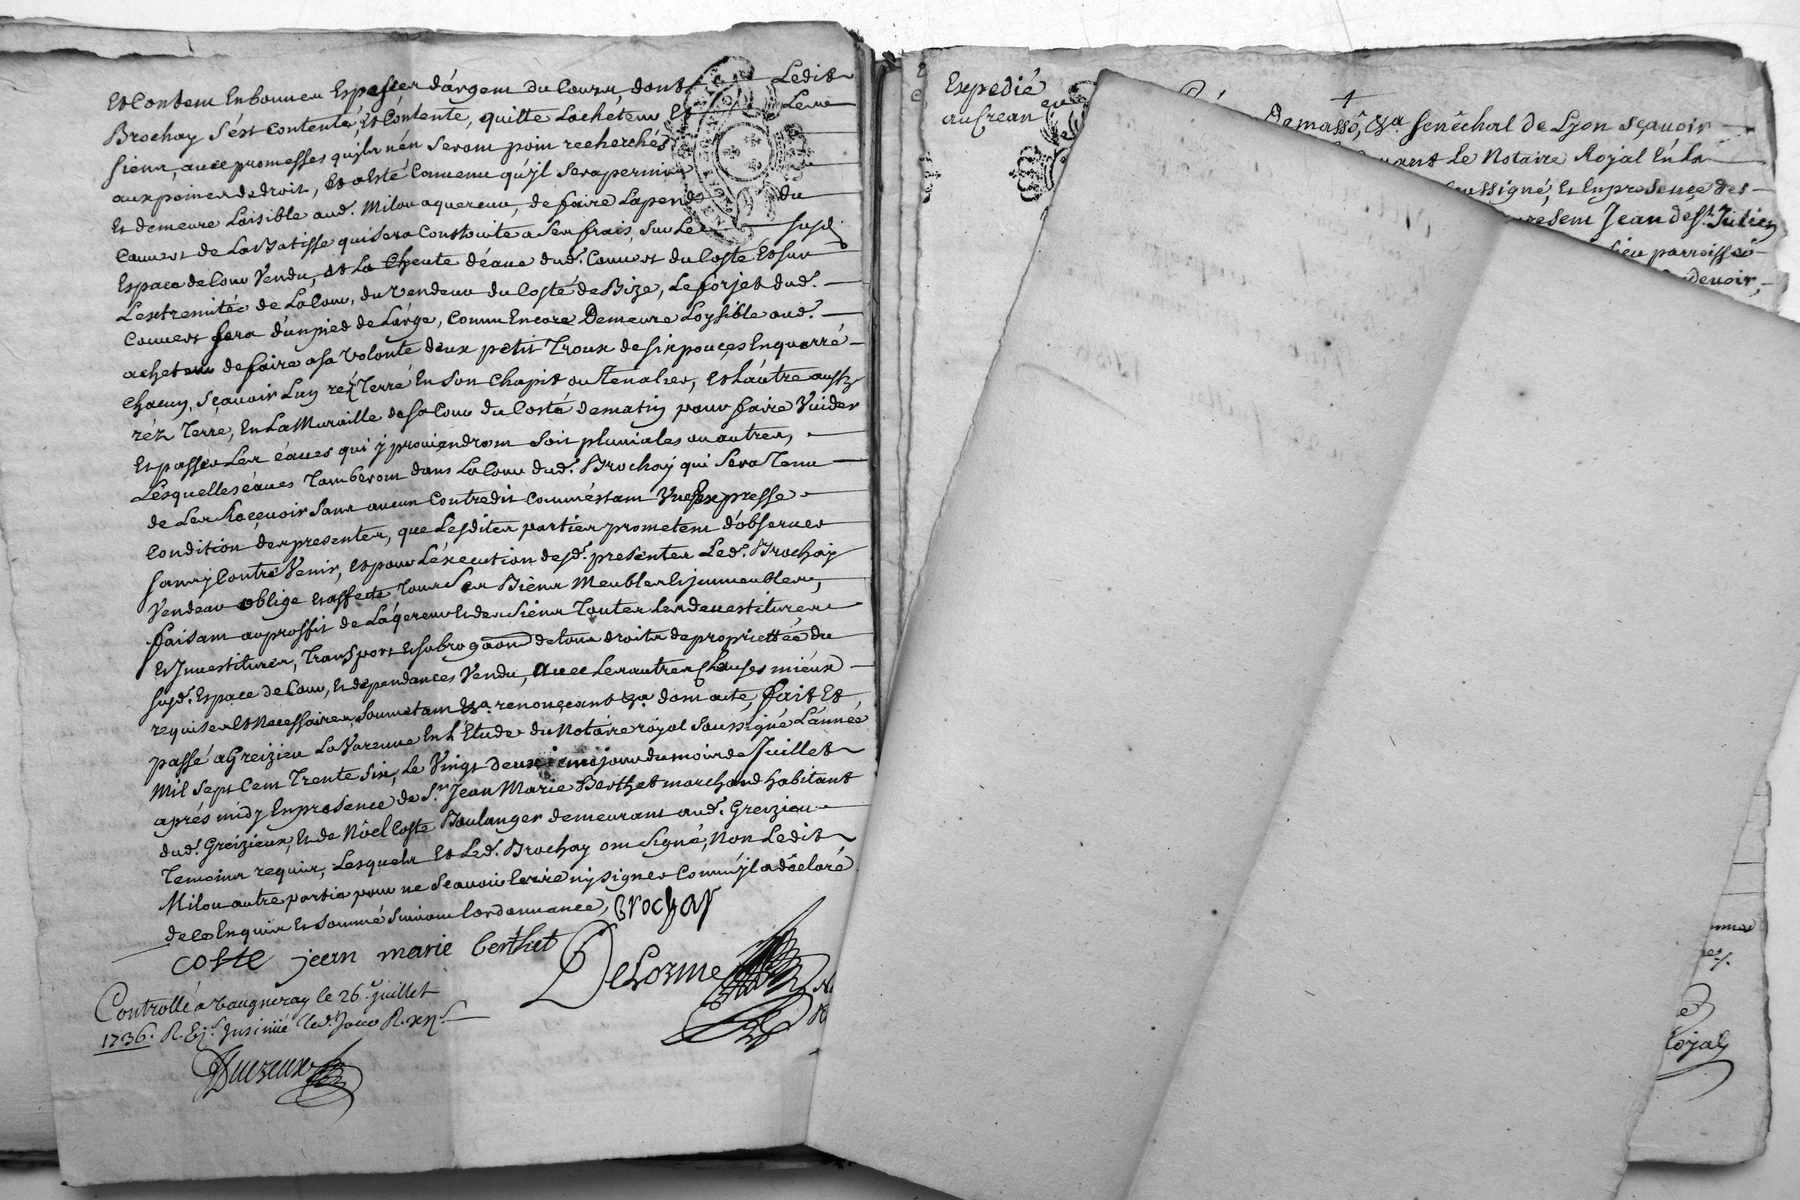 Et Contem En bonnes Espesses d'argem du Cours, dont Ledit
Brochay S'est Contenté, Et Contente, quitte Lacheteur Et Les
siens, avec promesses qu'jls n'en Serom poin recherchés
aux peines de droit, Et a Esté Convenu qu'jl Sera permis
Et demeure Loisible aud. Milou aquereur, de faire La pente du
Couvert de La Batisse qui sera Construite a Ses frais, Sur Le susd.
Espace de Cour Vendu, Et La Cheute d'eaue dud. Couvert du Costé Et sur
L'extremitée de La Cour, du Vendeur du Costé de Bize, Le forjet dud.
Couvert sera d'un pied de Large, Comm Encore Demeure Loysible aud.
acheteur de faire a sa Volonté deux petit Troux de six pouçes En quarré
Chacun, Sçavoir L'un réz Terre En Son Chapit ou Tenalier, et L'autre aussy
réz Terre, En La Muraille de sa Cour du Costé de matin pour faire Vuider
Et passer Les éaues qui y proviendrom soit pluviales ou autres,
Lesquelles eaues Tomberom dans La Cour dud. Brochay qui Sera Tenu
de Les Reçevoir Sans aucun Contredit Comm'estam Vne Expresse
Condition des presentes, que Lesdites parties prometent d'observer
sans y Contre Venir, et pour L'execution desd. presentes Led. Brochay
Vendeur oblige Et affecte Tous Ses Biens Meubles Et jmmeubles,
faisam au proffit de L'aqereur Et des Siens Toutes Les devestitures
Et Jnvestitures, Transport Et subrogãon de tous droits de propriettée du
susd. Espace de Cour, Et dependances Vendu, avec Les autres Clauses mieux
requises Et Necessaires, Soumettam &a. renonçeant &a. dom acte, fait Et
passé a Greizieu La Varenne En L'Etude du Notaire royal Soussigné L'année
Mil Sept Cent Trente Six, Le Vingt deuxieme jour du mois de Juillet
aprés midy En presence de S.r Jean Marie Berthet marchand habitant
dud. Greizieux, Et de Nöel Coste Boulanger demeurant aud. Greizieu
Temoins requis, Lesquels Et Led. Brochay om signé, Non Ledit
Milou autre partie pour ne Sçavoir Ecrire ny signer Comm'jl a déclaré
de ce Enquis Et Sommé Suivam L'ordonnance, Brochay
Coste jean marie berthet
DeLorme
Controllé á Vaugneray le 26.e juillet
1736. R.
Expedié
au Crean
Damassô, &a. senêchal de Lyon sçavoir
Le Notaire Rojal En La
soussigné, Et En presençe des
present Jean de St. Julien
parroisse
devoir,
Rojal